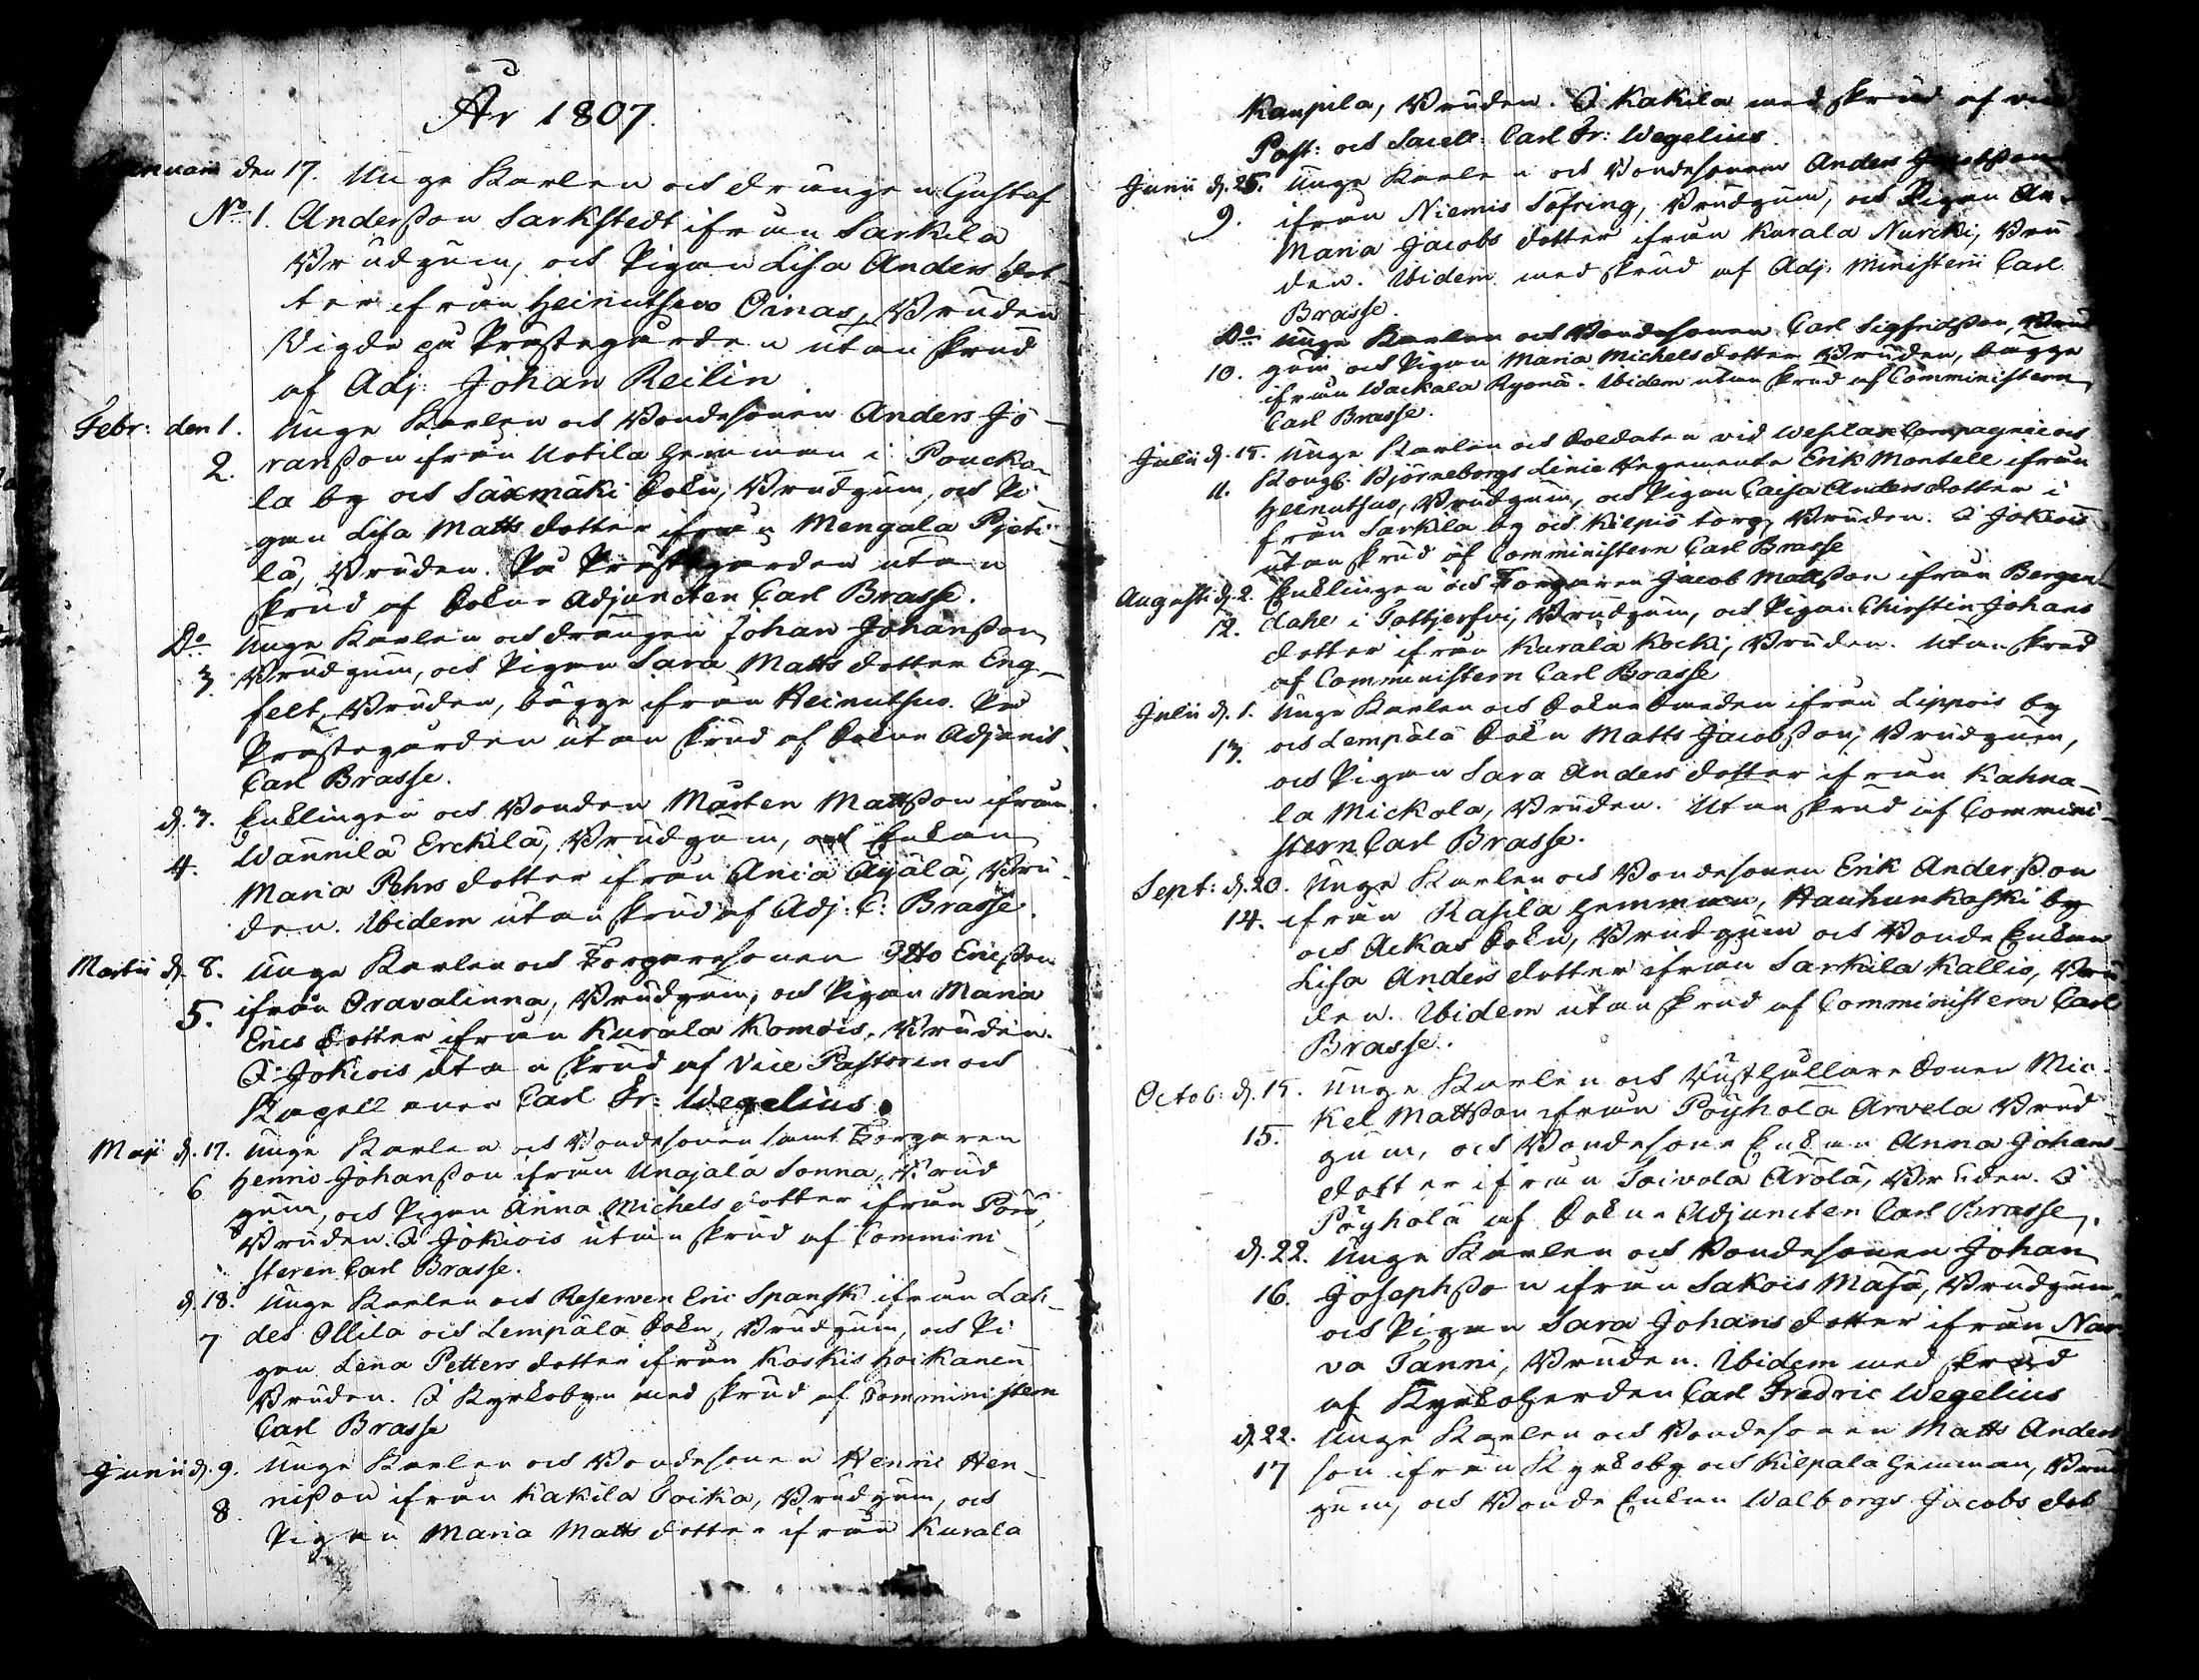 År 1807.
Januarii den 17. Unge Karlen och drängen Gustaf
No 1. Andersson Sarkstedt ifrån Sarkila
Brudgum, och Pigan Lisa Anders dot-
ter ifrån Heinuthuo Oinas, Bruden
Vigde på Prästegården utan skrud
af Adj: Johan Reilin.
Febr: den 1. Unge Karlen och Bondesonen Anders Jö-
2. ransson ifrån Uotila Hemman i Poucko-
la by och Säxmäki Sokn, Brudgum, och Pi-
gan Lisa Matts dotter ifrån Mengala Pjeti-
lä, Bruden. På Prästgården utan
skrud af Sokne Adjuncten Carl Brasse.
Do Unge Karlen och drängen Johan Johansson
3. Brudgum, och Pigan Sara Matts dotter Eng-
felt, Bruden, bägge ifrån Heinuthuo. På
Prästegården utan skrud af Sokne Adjunct.
Carl Brasse.
d. 3. Enklingen och Bonden Mårten Mattsson ifrån
4. Wännilä Erckilä, Brudgum, och Enkan
Maria Pehrs dotter ifrån Aniä Äijälä, Bru-
den. Ibidem utan skrud af Adj: C: Brasse.
Martii d. 8. Unge Karlen och Torparesonen Otto Ericsson
5. ifrån Oravalinna, Brudgum, och Pigan Maria
Erics dotter ifrån Kurala Komois, Bruden.
I Jokiois utan skrud af Vice Pastoren och
Kapellanen Carl Fr: Wegelius.
Maji d. 17. Unge Karlen och Bondesonen samt Torparen
6 Henric Johansson ifrån Unajala Sonna, Brud
gum, och Pigan Anna Michels dotter ifrån Porü,
Bruden. I Jokiois utan skrud af Commini-
steren Carl Brasse.
d. 18. Unge Karlen och Reserven Eric Spansk ifrån Lah-
7 des Ollila och Lempälä Sokn, Brudgum, och Pi
gan Lena Petters dotter ifrån Koskis Hoikanen
Bruden. I Kyrkobyn med skrud af Comministern
Carl Brasse
Junii d. 9. Unge Karlen och Bondesonen Henric Hen-
8. risson ifrån Kakila Toika, Brudgum, och
Pigan Maria Matts dotter ifrån Kurala
Kaupila, Bruden. I Kakila med skrud af vice
Past: och Sacell: Carl Fr: Wegelius.
Junii d. 25. Unge Karlen och Bondesonen Anders Jacobsson
9. ifrån Niemis Söfring, Brudgum, och Pigan An-
Maria Jacobs dotter ifrån Kurala Nurcki, Bru
den. Ibidem med skrud af Adj: Ministerii Carl
Brasse.
Do Unge Karlen och Bondesonen Carl Sigfridsson, Brud
10. gum och Pigan Maria Michels dotter Bruden, bägge
ifrån Wackala Ryönä. Ibidem utan skrud af Comministern
Carl Brasse.
Julii d. 15. Unge Karlen och Soldaten vid Wesilax Compagnie och
11. Kongl: Björneborgs Linie Regemente Erik Montell ifrån
Heinuthuo, Brudgum, och Pigan Caisa Anders dotter i
från Sarkila by och Kilpiö torp, Bruden. I Jokiois
utan skrud af Comministern Carl Brasse
Augusti d. 2. Enklingen och Torparen Jacob Mattsson ifrån Bergen-
12. dahl i Tottjerfvi, Brudgum, och Pigan Christin Johans
dotter ifrån Kurala Kocki, Bruden. Utan skrud
af Comministern Carl Brasse
Julii d. 1. Unge Karlen och Sokne Smeden ifrån Lippois by
13. och Lempälä Sokn Matts Jacobsson, Brudgum,
och Pigan Sara Anders dotter ifrån Kahna-
la Mickola, Bruden. Utan skrud af Commini-
stern Carl Brasse.
Sept: d. 20. Unge Karlen och Bondesonen Erik Andersson
14. ifrån Rasila Hemman, Hauhunkoski by
och Ackas Sokn, Brudgum och Bonde Enkan
Lisa Anders dotter ifrån Sarkila Kallio, Bru
den. Ibidem utan skrud af Comministern Carl
Brasse.
Octob: d. 15. Unge Karlen och Rusthållare Sonen Mic-
15. kel Mattsson ifrån Pöyhölä Arvela Brud
gum, och Bondesone Enkan Anna Johans-
dotter ifrån Toivola Arolä, Bruden. I
Pöyhölä af Sokne Adjuncten Carl Brasse.
d. 22. Unge Karlen och Bondesonen Johan
16. Josephsson ifrån Sakois Masü, Brudgum,
och Pigan Sara Johans dotter ifrån Nar
va Tanni, Bruden. Ibidem med skrud
af Kyrkoherden Carl Fredric Wegelius
d. 22. Unge Karlen och Bondesonen Matts Anders
17 son ifrån Kyrkoby och Kilpala Hemman, Brud
gum, och Bonde Enkan Walborgs Jacobs dot